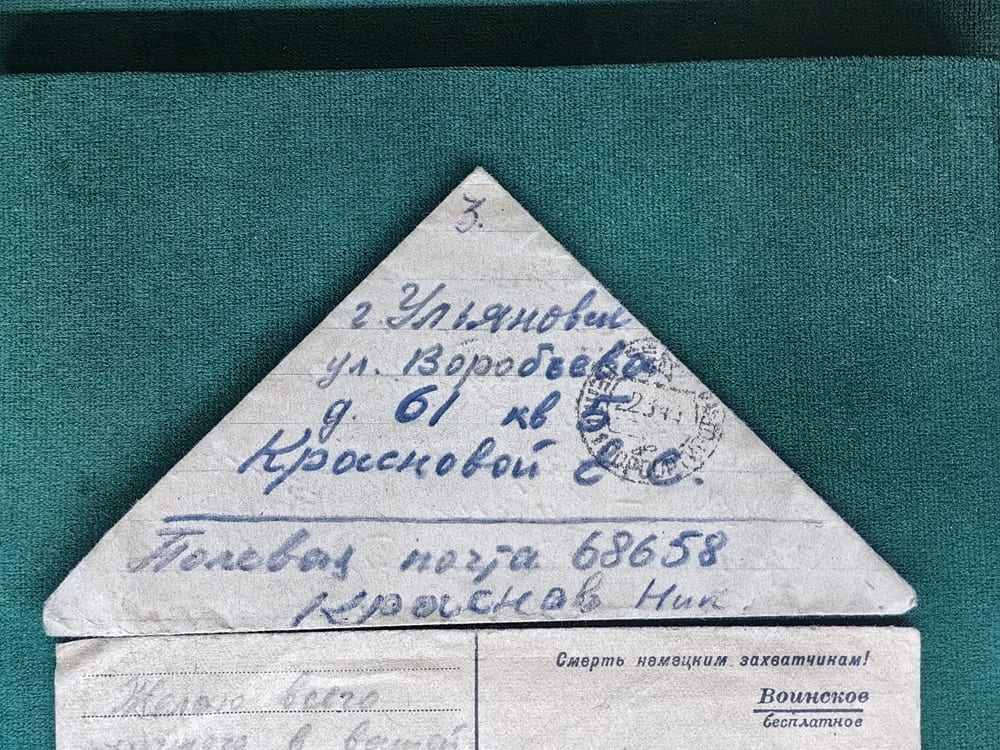 3.
г. Ульяновск
ул. Воробьева
д. 61 кв 5
Красновой Е. С.
Полевая почта 68658
Краснов Ник.
Смерть немецким захватчикам!
Воинское
бесплатное
Желаю всего
в вашей